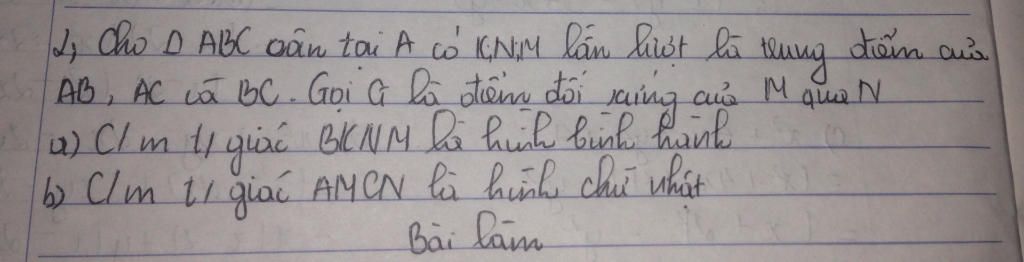 2, Cho Δ ABC cân tại A có K,N,M lần lượt là trung điểm của
AB, AC và BC. Gọi G là điểm đối xứng của M qua N
a) C/m t/giác BKNM là hình bình hành
b) C/m t/giác AMCN là hình chữ nhật
Bài làm